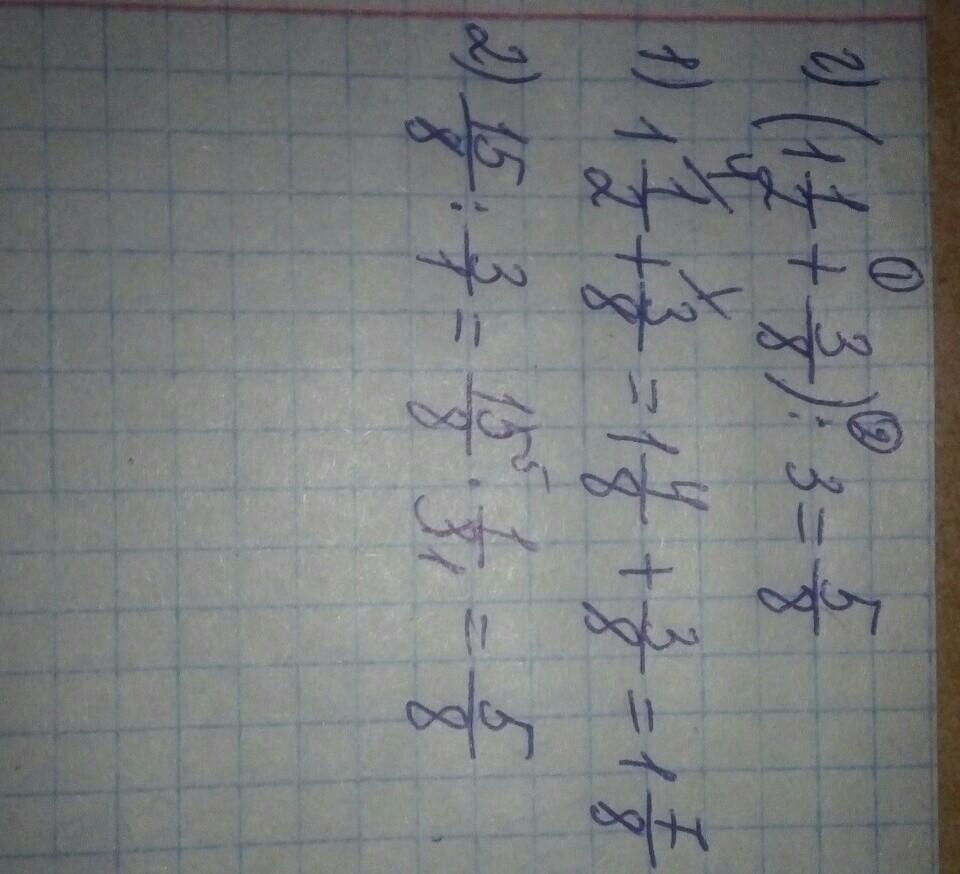 г) (1 1/2 + 3/8) : 3 = 5/8
1) 1 1/2 + 3/8 = 1 4/8 + 3/8 = 1 7/8
2) 15/8 : 3/1 = 15/8 · 1/3 = 5/8